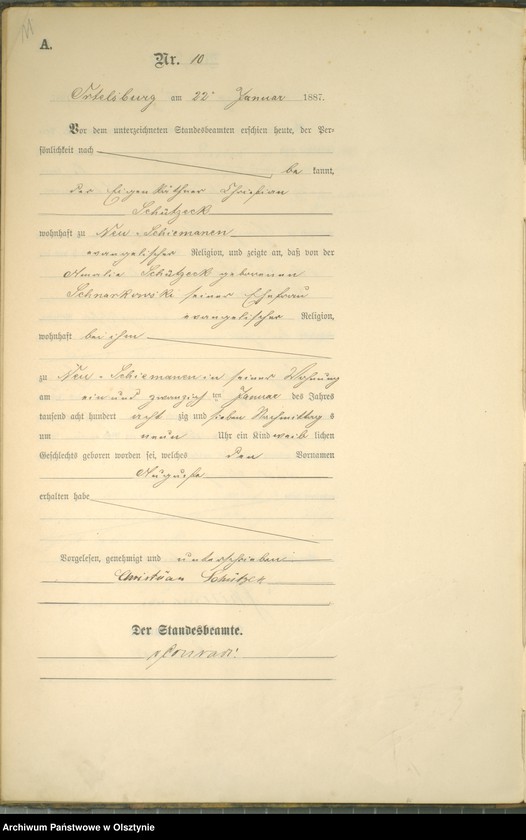 A.
Nr. 10
Ortelsburg am 22ᵗ Januar 1887.
Vor dem unterzeichneten Standesbeamten erschien heute, der Per-
sönlichkeit nach
be kannt,
der Eigenkäthner Christian
Schützeck
wohnhaft zu Neu-Schiemanen
evangelischer Religion, und zeigte an, daß von der
Amalie Schützeck geborenen
Schnarkowski seiner Ehefrau
evangelischer Religion,
wohnhaft bei ihm
zu Neu-Schiemanen in seiner Wohnung
am ein und zwanzig ten Januar des Jahres
tausend acht hundert acht zig und sieben Nachmittag s
um neun Uhr ein Kind weib lichen
Geschlechts geboren worden sei, welches den Vornamen
Auguste
erhalten habe
Vorgelesen, genehmigt und unterschrieben
Christian Schützeck
Der Standesbeamte.
Archiwum Państwowe w Olsztynie